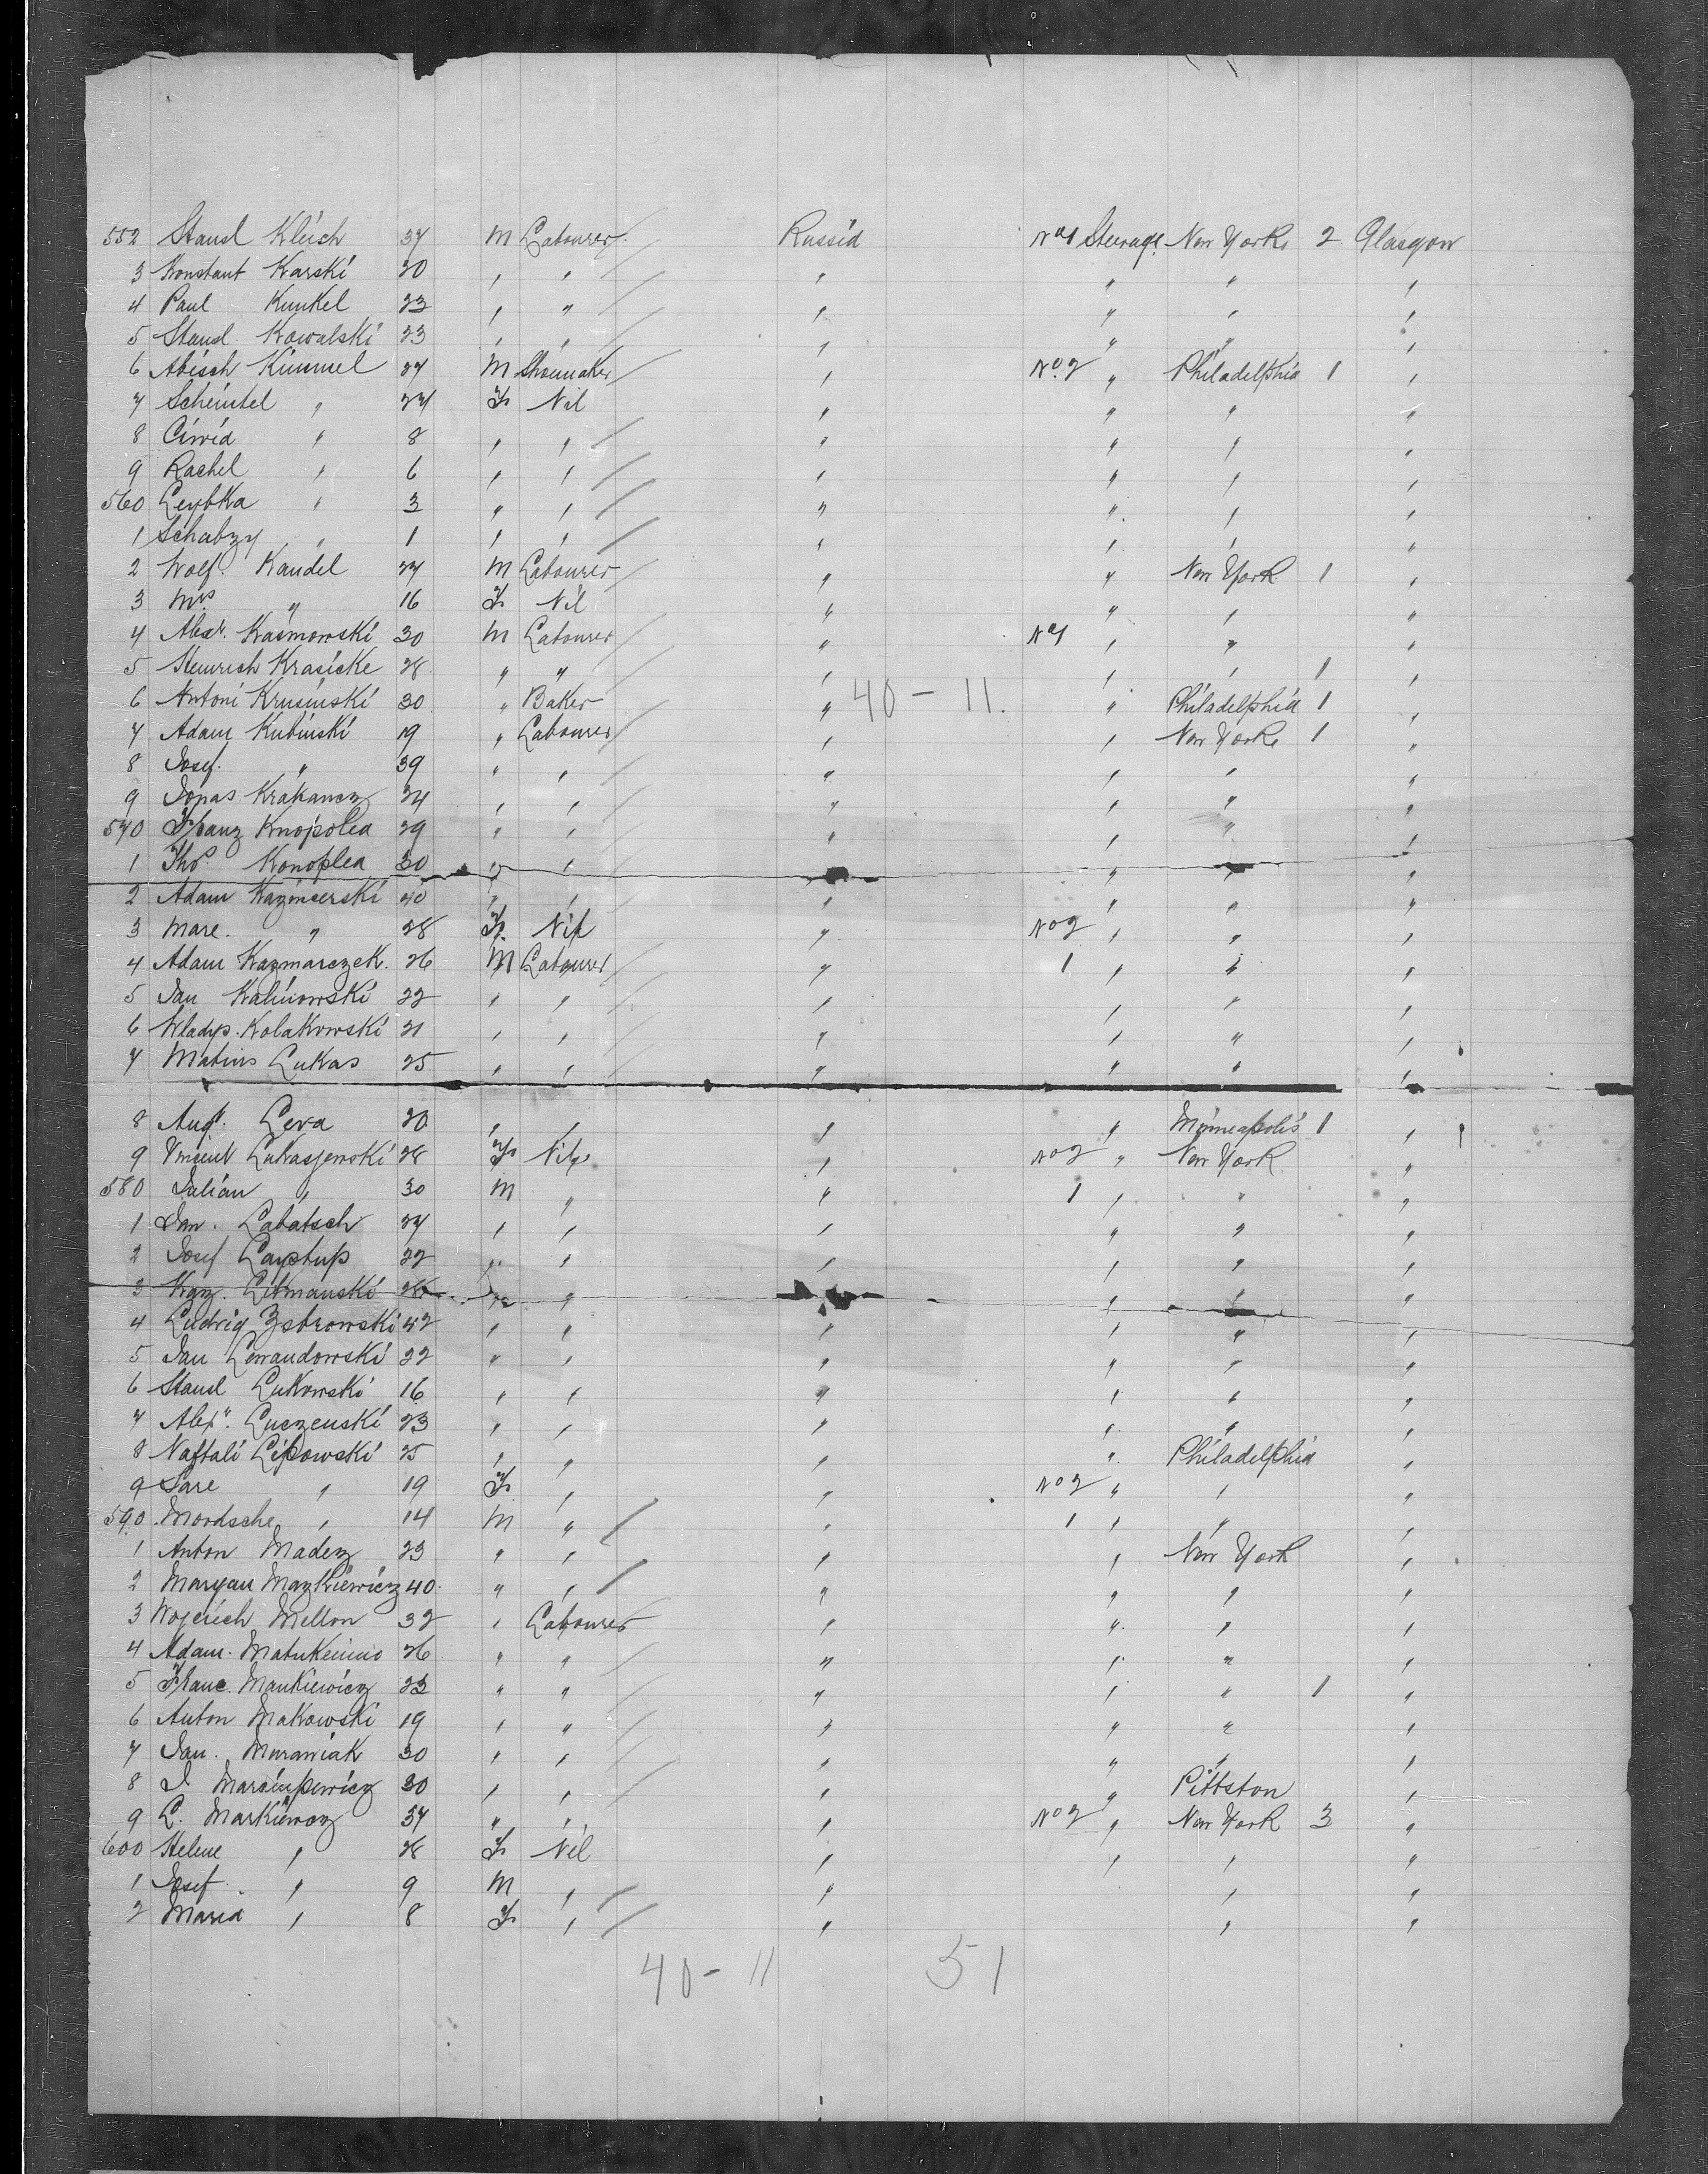 552 Stansl Kleisch 37 M Labourer Russia No 1 Steerage New York 2 Glasgow
3 Konstant Karski 20 " " " " " "
4 Paul Kunkel 23 " " " " " "
5 Stansl Kowalski 23 " " " " " "
6 Abisch Kimmel 27 M Shoemaker " No 2 " Philadelphia 1 "
7 Scheintel " 27 F Nil " " " "
8 Ciwia " 8 " " " " " "
9 Rachel " 6 " " " " " "
560 Leybka " 3 " " " " " "
1 Schabzy " 1 " " " " " "
2 Wolf Kandel 27 M Labourer " " New York 1 "
3 Mrs " 16 F Nil " " " "
4 Alexr. Kasmowski 30 M Labourer " No 1 " " "
5 Heinrich Krasicke 28 " " " " " 1 "
6 Antoni Krusinski 30 " Baker " 40 - 11. " Philadelphia 1 "
7 Adam Kubinski 19 " Labourer " " New York 1 "
8 Josef " 39 " " " " " "
9 Jonas Krakancz 24 " " " " " "
570 Franz Knopolea 29 " " " " " "
1 Thos. Konoplea 30 " " " " " "
2 Adam Kazmierski 40 " " " " " "
3 Mare. " 28 F Nil " No 2 " " "
4 Adam Kazmarczek. 26 M Labourer " 1 " " "
5 Jan Kalinowski 22 " " " " " "
6 Wladys. Kolakowski 21 " " " " " "
7 Matius Lukas 25 " " " " " "
8 Augt. Leva 20 " " " " Minneapolis 1 "
9 Vincent Lukasjewski 28 F Nil " No 2 " New York "
580 Julian " 30 M " " 1 " " "
1 Jan. Labatsch 27 " " " " " "
2 Josef Laystup 22 " " " " " "
3 Litmanski " " " " " "
4 Ludwig Zstrowski 42 " " " " " "
5 Jan Lewandowski 22 " " " " " "
6 Stansl Lukowski 16 " " " " " "
7 Alexr. Luczenski 23 " " " " " "
8 Naftali Lipowski 25 " " " " Philadelphia "
9 Sare " 19 F " " No 2 " " "
590 Mordsche " 14 M " " 1 " " "
1 Anton Madez 23 " " " " New York "
2 Maryan Mazkiewicz 40 " " " " " "
3 Wojciech Mellon 32 " Labourer " " " "
4 Adam. 26 " " " " " "
5 Franc. Mankiewicz 23 " " " " " 1 "
6 Anton Makowski 19 " " " " " "
7 Jan. Murawiak 30 " " " " " "
8 J 30 " " " " Pittston "
9 L. Markiewcz 37 " " " No 2 " New York 3 "
600 Helene " 28 F Nil " " " "
1 Josef " 9 M " " " "
2 Maria " 8 F " " " "
40 - 11 51